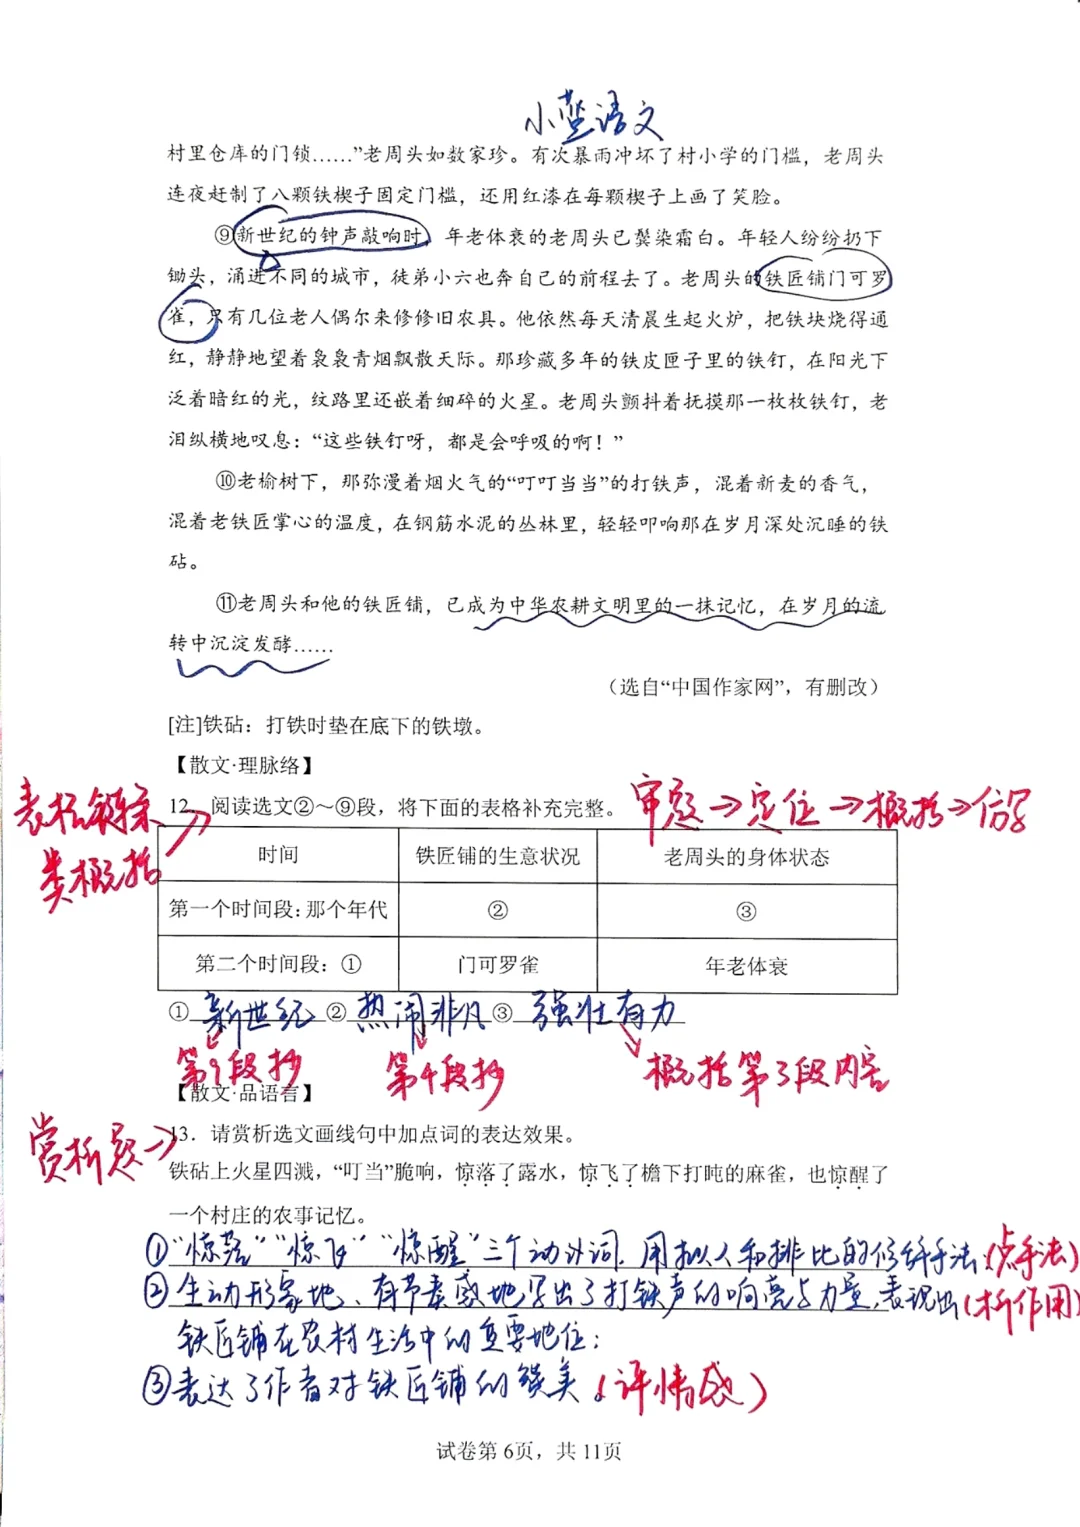 小蓝语文
村里仓库的门锁……”老周头如数家珍。有次暴雨冲坏了村小学的门槛，老周头
连夜赶制了八颗铁楔子固定门槛，还用红漆在每颗楔子上画了笑脸。
⑨新世纪的钟声敲响时，年老体衰的老周头已鬓染霜白。年轻人纷纷扔下
锄头，涌进不同的城市，徒弟小六也奔自己的前程去了。老周头的铁匠铺门可罗
雀，只有几位老人偶尔来修修旧农具。他依然每天清晨生起火炉，把铁块烧得通
红，静静地望着袅袅青烟飘散天际。那珍藏多年的铁皮匣子里的铁钉，在阳光下
泛着暗红的光，纹路里还嵌着细碎的火星。老周头颤抖着抚摸那一枚枚铁钉，老
泪纵横地叹息：“这些铁钉呀，都是会呼吸的啊！”
⑩老榆树下，那弥漫着烟火气的“叮叮当当”的打铁声，混着新麦的香气，
混着老铁匠掌心的温度，在钢筋水泥的丛林里，轻轻叩响那在岁月深处沉睡的铁
砧。
⑪老周头和他的铁匠铺，已成为中华农耕文明里的一抹记忆，在岁月的流
转中沉淀发酵……
（选自“中国作家网”，有删改）
[注]铁砧：打铁时垫在底下的铁墩。
【散文·理脉络】
表格
类概括
12．阅读选文②～⑨段，将下面的表格补充完整。
审题→定位→概括→仿写
时间 铁匠铺的生意状况 老周头的身体状态
第一个时间段：那个年代 ② ③
第二个时间段：① 门可罗雀 年老体衰
①新世纪②热闹非凡③强壮有力
第9段抄 第4段抄 概括第3段内容
【散文·品语言】
赏析题→
13．请赏析选文画线句中加点词的表达效果。
铁砧上火星四溅，“叮当”脆响，惊落了露水，惊飞了檐下打盹的麻雀，也惊醒了
一个村庄的农事记忆。
①“惊落”“惊飞”“惊醒”三个动词，用拟人和排比的修辞手法；（点手法）
②生动形象地、有节奏感地写出了打铁声的响亮与力量，表现出（析作用）
铁匠铺在农村生活中的重要地位；
③表达了作者对铁匠铺的赞美（评情感）
试卷第6页，共11页